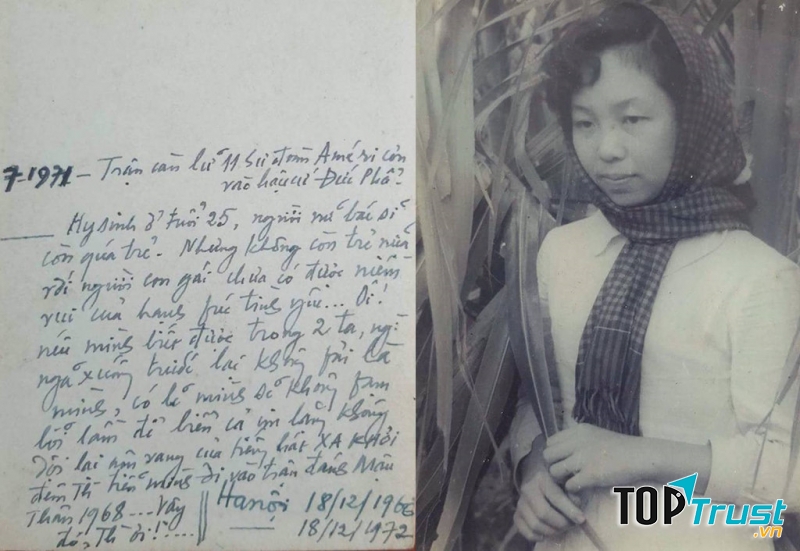 7-1971 – Trận càn lữ 11 Sư đoàn Américơn
vào hậu cứ Đức Phổ.
Hy sinh ở tuổi 25, người nữ bác sĩ
còn quá trẻ. Nhưng không còn trẻ nữa
với người con gái chưa có được niềm
vui của hạnh fúc tình yêu... Ôi!
nếu mình biết được trong 2 ta, ng
ngã xuống trước lại không fải là
mình, có lẽ mình sẽ không fạm
lỗi lầm để biển cả im lặng không
dội lại âm vang của tiếng hát XA KHƠI
đêm Th tiễn mình đi vào trận đánh Mậu
Thân 1968 .... Vậy
đó, Th ơi! ....
Hanội 18/12/1966
18/12/1972
TOPTrust
.vn